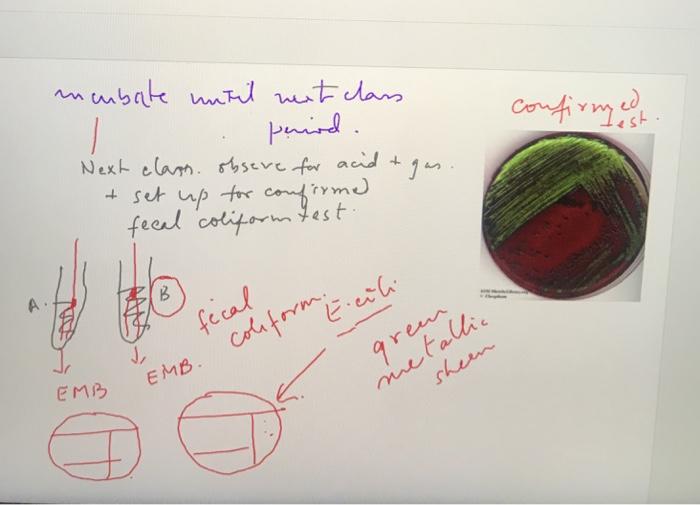 incubate until next class
period.
Next class. observe for acid + gas.
+ set up for confirmed
fecal coliform test.
confirmed
test.
A.
B
fical
coliform.
E. coli
green
metallic
sheen
EMB
EMB.